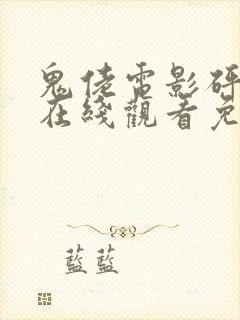 鬼佬電影研
在綫觀看免
藍藍